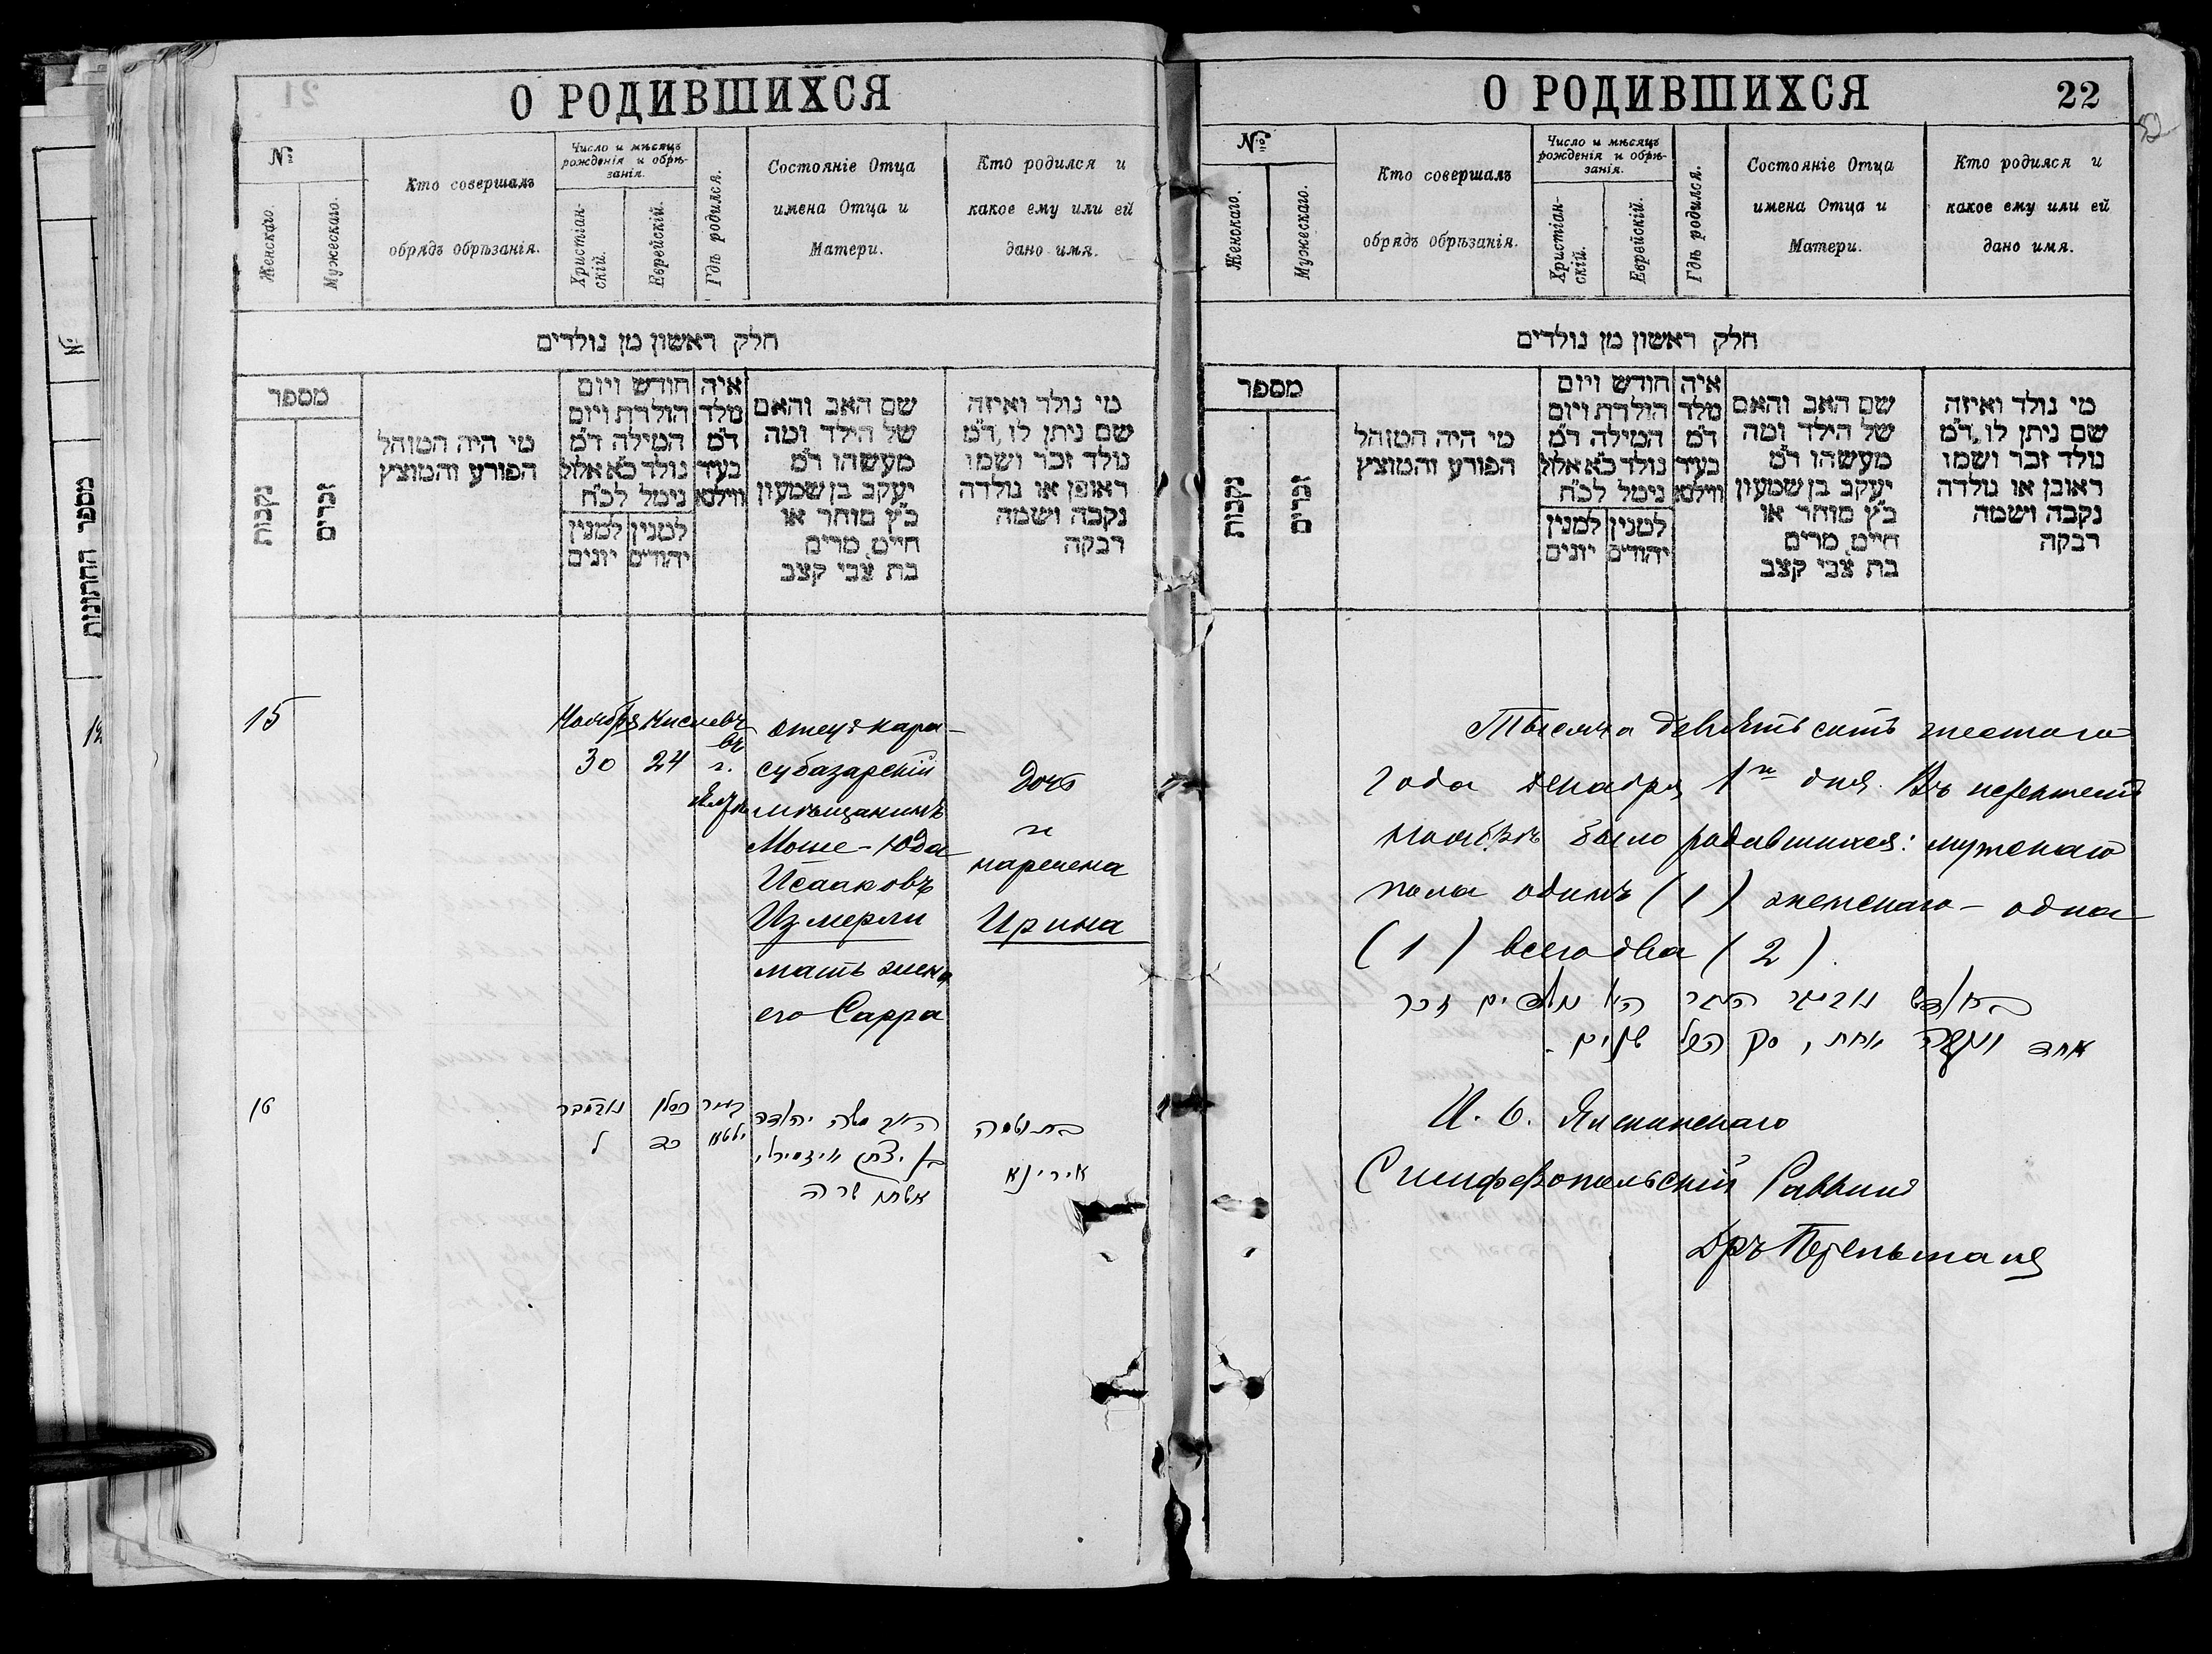 О РОДИВШИХСЯ
№
Женскаго.
Мужескаго.
Кто совершалъ
обрядъ обрѣзанія.
Число и мѣсяцъ
рожденія и обрѣ-
занія.
Христіан-
скій.
Еврейскій.
Гдѣ родился.
Состояніе Отца
имена Отца и
Матери.
Кто родился и
какое ему или ей
дано имя.
חלק ראשון מן נולדים
מספר
נקבות
זכרים
מי היה המוהל
הפורע והמוצץ
חודש ויום
הולדת ויום
המילה ד״מ
נולד כ״א אלול
נימל לכ״ח
למנין
יהודים
למנין
יונים
איה
מלד
ד״מ
בעיר
ווילנא
שם האב והאם
של הילד ומה
מעשהו ד״מ
יעקב בן שמעון
כ״ץ סוחר או
חייט, מרים
בת צבי קצב
מי נולד ואיזה
שם ניתן לו, ד״מ
נולד זכר ושמו
ראובן או נולדה
נקבה ושמה
רבקה
15
Ноября
30
Кислевъ
24
въ
г.
Ялтѣ
отецъ кара-
субазарскій
мѣщанинъ
Моше-Юда
Исааковъ
Измерли
мать жена
его Сарра
Дочь
и
наречена
Ирина
16
נאוועמבר
ל
כסלו
כד
בעיר
יאלטא
האב משה יהודה
בן יצחק איזמירלי,
אשתו שרה
בת ושמה
אירינא
О РОДИВШИХСЯ
22
№
Женскаго.
Мужескаго.
Кто совершалъ
обрядъ обрѣзанія.
Число и мѣсяцъ
рожденія и обрѣ-
занія.
Христіан-
скій.
Еврейскій.
Гдѣ родился.
Состояніе Отца
имена Отца и
Матери.
Кто родился и
какое ему или ей
дано имя.
חלק ראשון מן נולדים
מספר
נקבות
זכרים
מי היה המוהל
הפורע והמוצץ
חודש ויום
הולדת ויום
המילה ד״מ
נולד כ״א אלול
נימל לכ״ח
למנין
יהודים
למנין
יונים
איה
מלד
ד״מ
בעיר
ווילנא
שם האב והאם
של הילד ומה
מעשהו ד״מ
יעקב בן שמעון
כ״ץ סוחר או
חייט, מרים
בת צבי קצב
מי נולד ואיזה
שם ניתן לו, ד״מ
נולד זכר ושמו
ראובן או נולדה
נקבה ושמה
רבקה
Тысяча девятьсотъ шестого
года декабря 1го дня. Въ истекшемъ
ноябрѣ было родившихся: мужского
пола одинъ (1) женскаго - одна
(1) всего два (2).
בחודש העבר היו נולדים זכר
אחד ונקבה אחת, סך הכל שנים.
И. о. Ялтинскаго
Симферопольскій Раввинъ